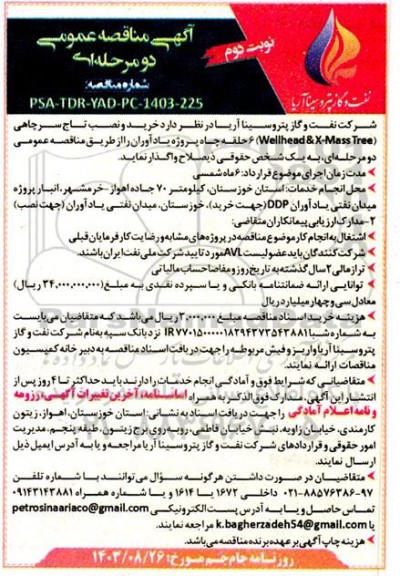 آگهی مناقصه عمومی
دو مرحله‌ای
نوبت دوم
شماره مناقصه:
PSA-TDR-YAD-PC-1403-225
نفت و گاز پتروسینا آریا
شرکت نفت و گاز پتروسینا آریا در نظر دارد خرید و نصب تاج سرچاهی
(Wellhead & X-Mass Tree) ۶ حلقه چاه پروژه یادآوران را از طریق مناقصه عمومی
دو مرحله‌ای، به یک شخص حقوقی ذیصلاح واگذار نماید.
مدت زمان اجرای موضوع قرارداد: ۶ ماه شمسی
محل انجام خدمات: استان خوزستان، کیلومتر ۷۰ جاده اهواز-خرمشهر، انبار پروژه
میدان نفتی یادآوران DDP (جهت خرید)، خوزستان، میدان نفتی یادآوران (جهت نصب)
۲- مدارک ارزیابی پیمانکاران متقاضی:
اشتغال به انجام کار موضوع مناقصه در پروژه‌های مشابه و رضایت کارفرمایان قبلی
شرکت کنندگان باید عضو لیست AVL مورد تایید شرکت ملی نفت ایران باشند.
ترازمالی ۲ سال گذشته به تاریخ روز و مفاصا حساب مالیاتی
توانایی ارائه ضمانتنامه بانکی و یا سپرده نقدی به مبلغ (۳۴،۰۰۰،۰۰۰،۰۰۰ ریال)
معادل سی و چهار میلیارد ریال
هزینه خرید اسناد مناقصه مبلغ ۳،۰۰۰،۰۰۰ ریال می‌باشد که متقاضیان می‌بایست
به شماره شبا IR نزد بانک سپه به نام شرکت نفت و گاز
پتروسینا آریا واریز و فیش مربوطه را جهت دریافت اسناد مناقصه به دبیرخانه کمیسیون
مناقصات ارائه نمایند.
متقاضیانی که شرایط فوق و آمادگی انجام خدمات را دارند باید حداکثر تا ۴ روز پس از
انتشار این آگهی، مدارک فوق الذکر به همراه اساسنامه، آخرین تغییرات آگهی، رزومه
و نامه اعلام آمادگی را جهت دریافت اسناد به نشانی: استان خوزستان، اهواز، زیتون
کارمندی، خیابان زاویه، نبش خیابان فاطمی، روبه‌روی برج زیتون، طبقه پنجم، مدیریت
امور حقوقی و قراردادهای شرکت نفت و گاز پتروسینا آریا مراجعه و یا به آدرس ایمیل ذیل
ارسال نمایند.
متقاضیان در صورت داشتن هرگونه سؤال می‌توانند با شماره تلفن
۰۲۱-۸۸۵۷۶۳۸۶-۹۷ داخلی ۱۶۷۲ یا ۱۶۱۴ و یا شماره همراه ۰۹۱۴۳۱۴۳۸۸۱
تماس حاصل و یا به آدرس پست الکترونیکی petrosinaariaco@gmail.com
یا k.bagherzadeh54@gmail.com مراجعه نمایند.
هزینه چاپ آگهی بر عهده برنده مناقصه می‌باشد.
روزنامه جام جم مورخ: ۱۴۰۳/۰۸/۲۶